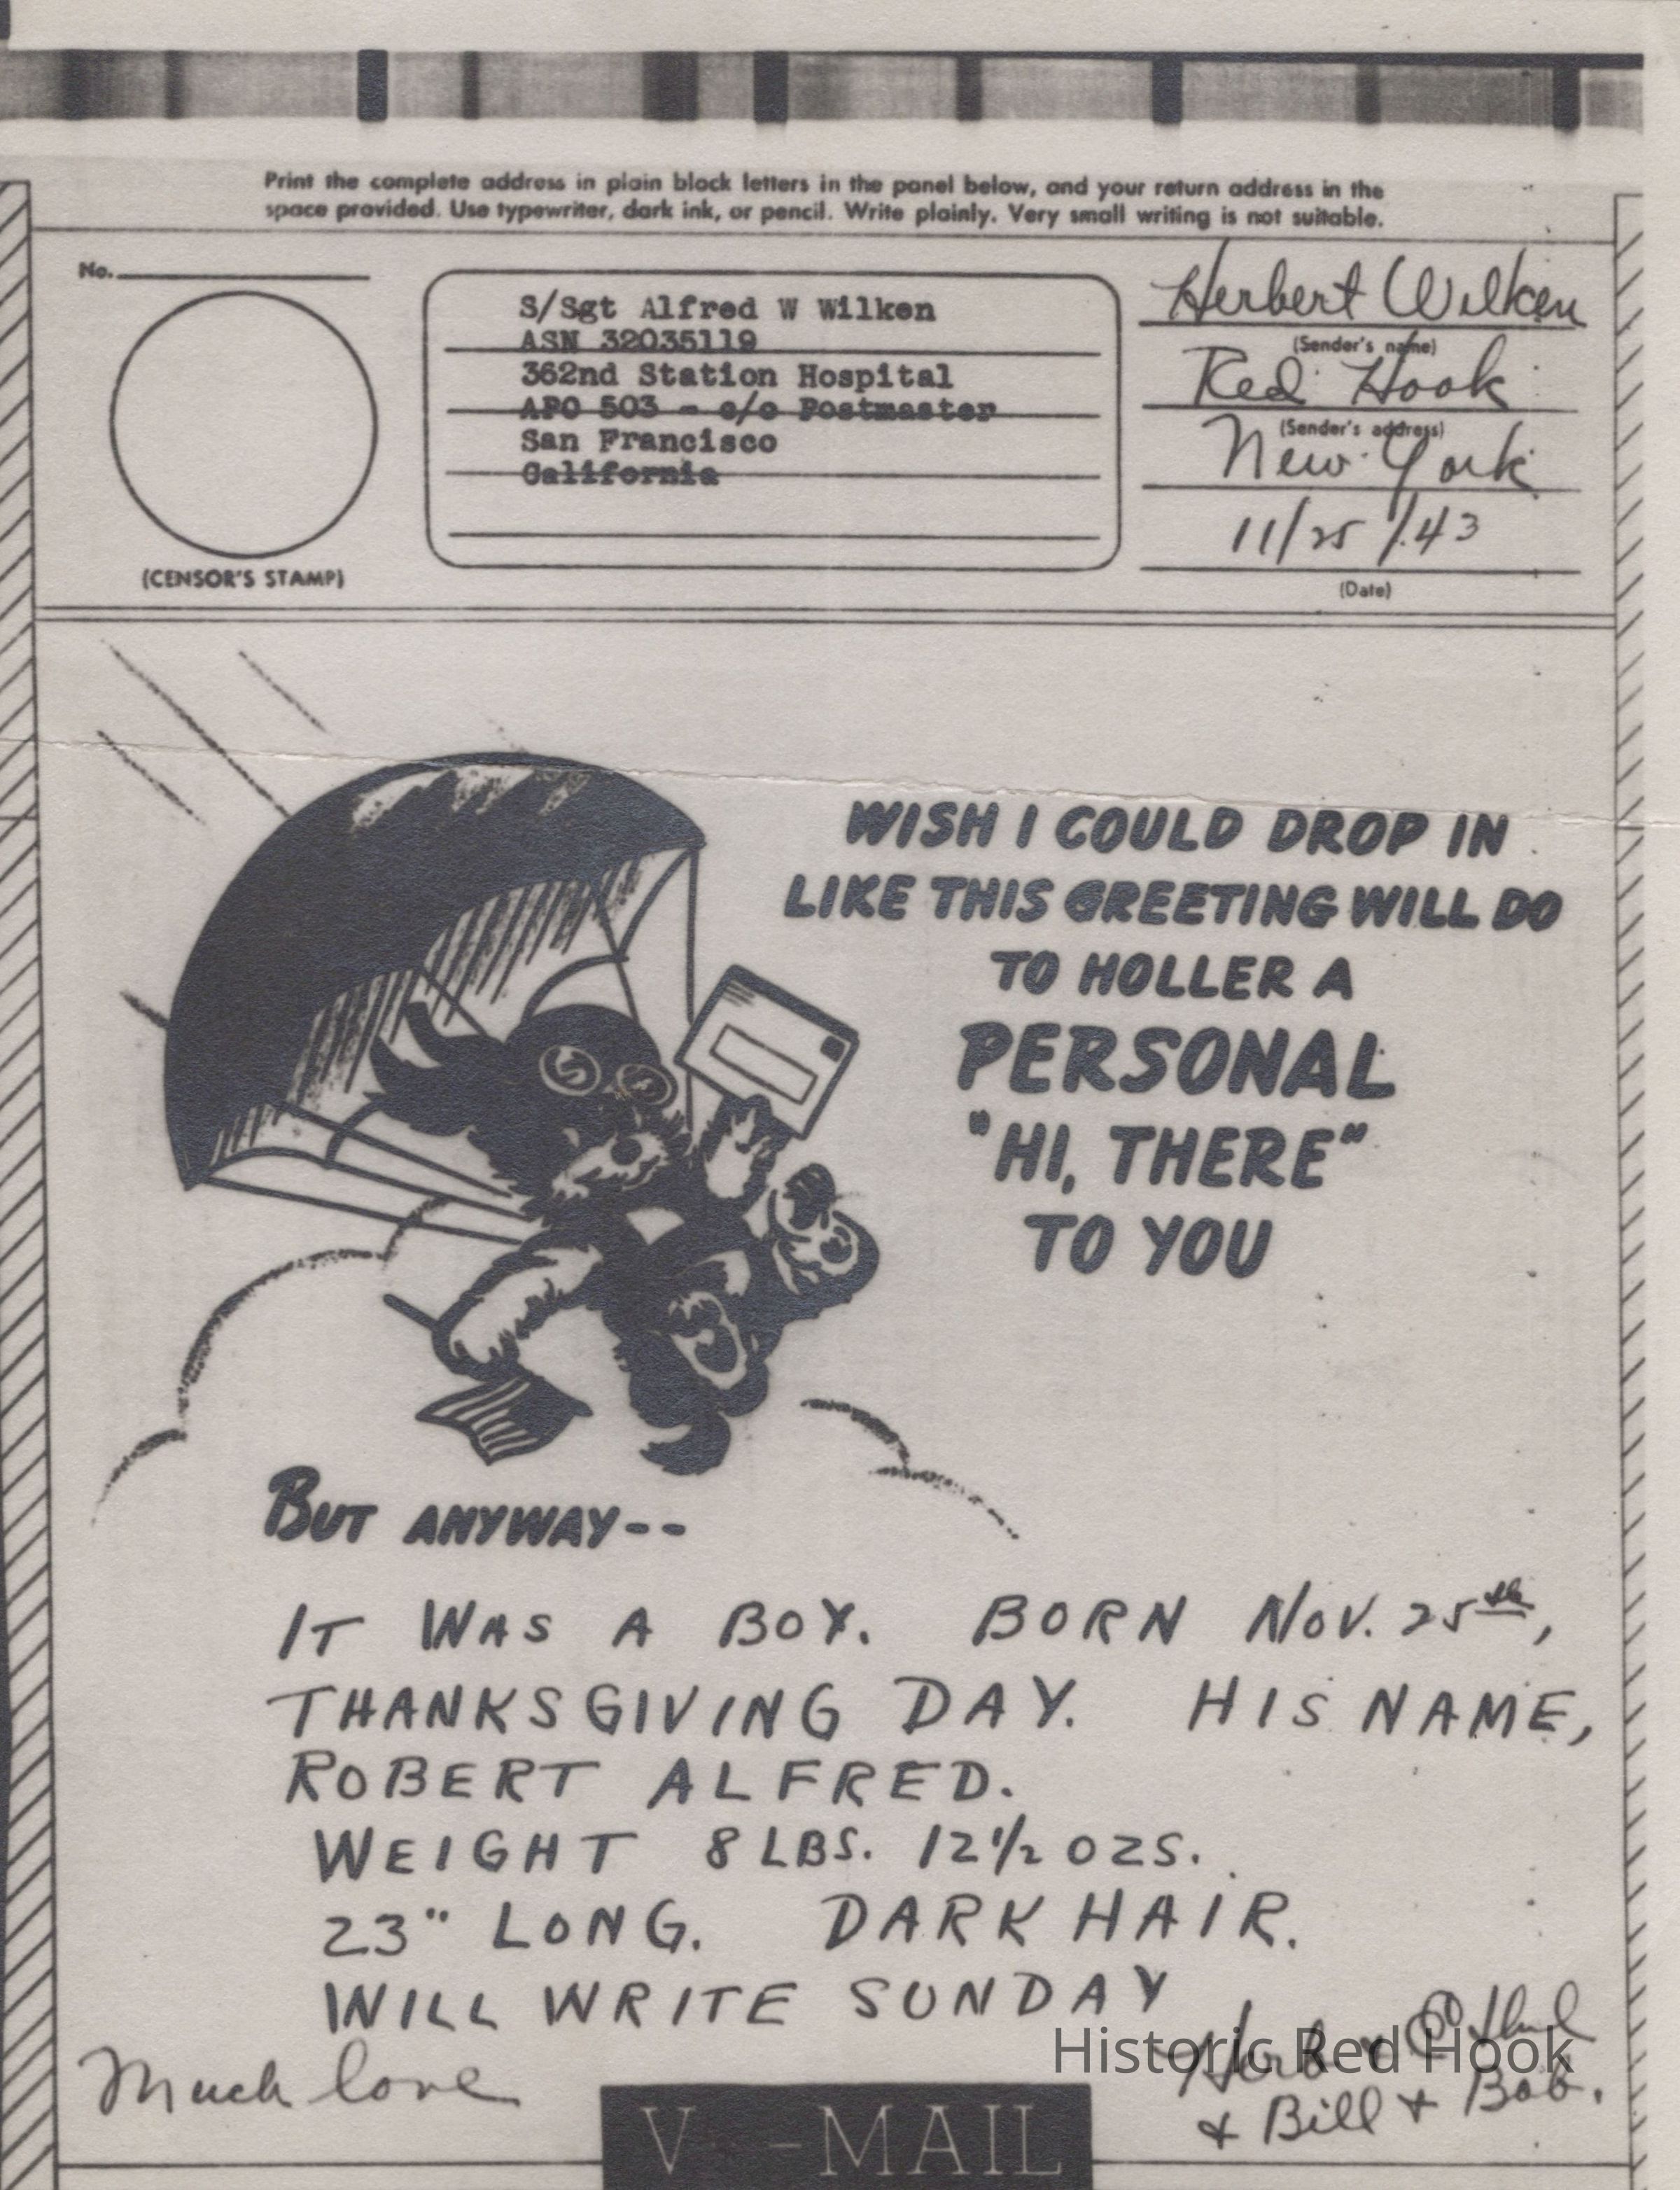 Print the complete address in plain block letters in the panel below, and your return address in the
space provided. Use typewriter, dark ink, or pencil. Write plainly. Very small writing is not suitable.
No.
(CENSOR'S STAMP)
S/Sgt Alfred W Wilken
ASN 32035119
362nd Station Hospital
APO 503 - c/o Postmaster
San Francisco
California
Herbert Wilken
(Sender's name)
Red Hook
(Sender's address)
New York
11/25/43
(Date)
WISH I COULD DROP IN
LIKE THIS GREETING WILL DO
TO HOLLER A
PERSONAL
"HI, THERE"
TO YOU
BUT ANYWAY--
IT WAS A BOY. BORN NOV. 25th,
THANKSGIVING DAY. HIS NAME,
ROBERT ALFRED.
WEIGHT 8 LBS. 12 1/2 OZS.
23" LONG. DARK HAIR.
WILL WRITE SUNDAY
Much love
Herb & Ethel
& Bill & Bob.
Historic Red Hook
V-MAIL